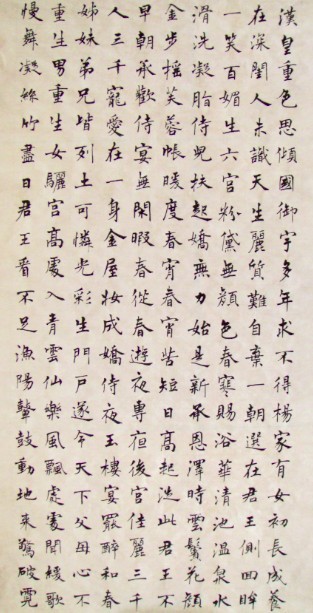 漢皇重色思傾國御宇多年求不得楊家有女初長成養
在深閨人未識天生麗質難自棄一朝選在君王側回眸
一笑百媚生六宮粉黛無顏色春寒賜浴華清池溫泉水
滑洗凝脂侍兒扶起嬌無力始是新承恩澤時雲鬢花顏
金步搖芙蓉帳暖度春宵春宵苦短日高起從此君王不
早朝承歡侍宴無閑暇春從春遊夜專夜後宮佳麗三千
人三千寵愛在一身金屋妝成嬌侍夜玉樓宴罷醉和春
姊妹弟兄皆列土可憐光彩生門戶遂令天下父母心不
重生男重生女驪宮高處入青雲仙樂風飄處處聞緩歌
慢舞凝絲竹盡日君王看不足漁陽鼙鼓動地來驚破霓